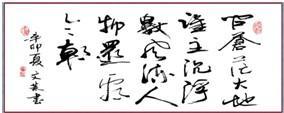 问蒼茫大地
誰主沉浮
數风流人
物還看
今朝
辛卯夏文書